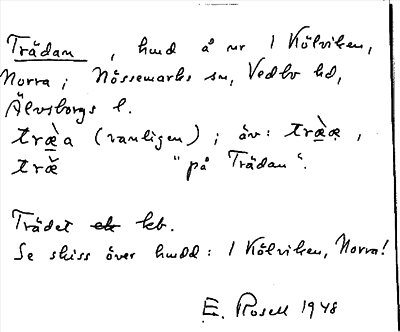 Trädan, hmd å nr 1 Kölviken,
Norra; Nössemarks sn, Vedbo hd,
Älvsborgs l.
træ̀a (vanligen); äv: træ̀æ,
træ̌ "på Trädan".
Trädet eb kb.
Se skiss över hmdd: 1 Kölviken, Norra!
E. Rosell 1948